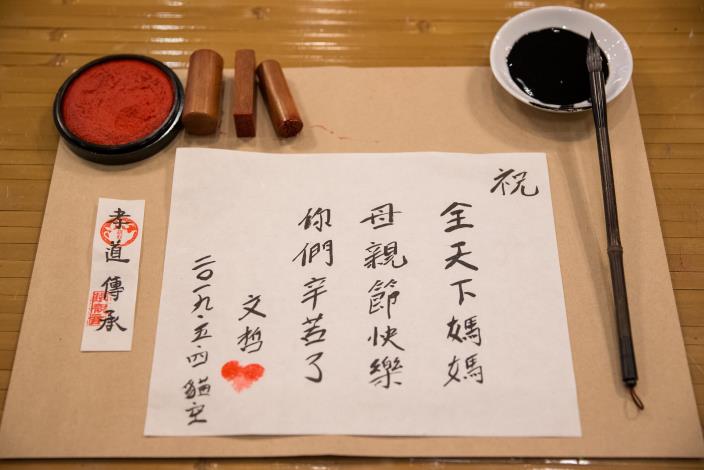 祝
全天下媽媽
母親節快樂
你們辛苦了
文哲
二〇一九·五·四 貓空
孝道傳承